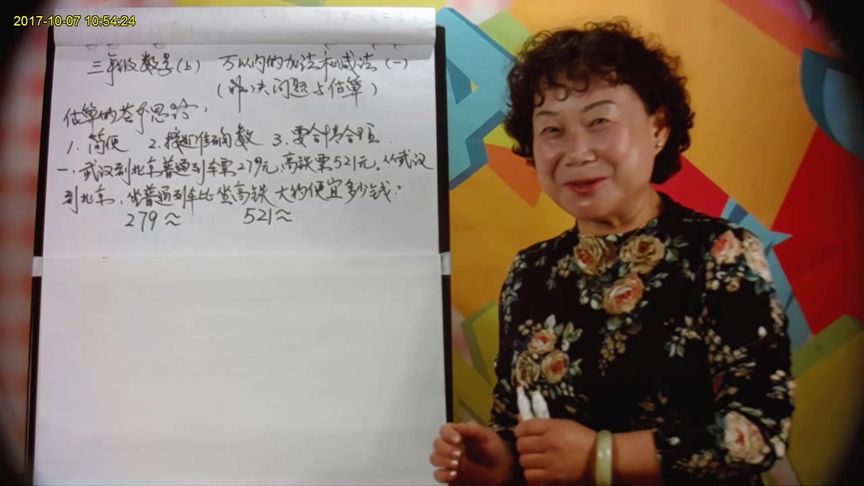 2017-10-07 10:54:24
三年级数学(上) 万以内的加法和减法(一)
(解决问题与估算)
估算的苍乎思路:
1. 简便 2. 接近准确数 3. 要合情合理.
一. 武汉到北京普通列车票279元,高铁票521元。从武汉
到北京,坐普通列车比坐高铁大约便宜多少钱?
279≈ 521≈